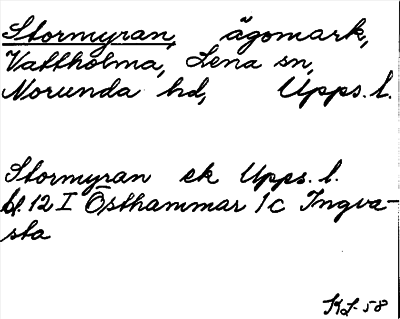 Stormyran, ägomark,
Vattholma, Lena sn,
Norunda hd, Upps. l.
Stormyran ek Upps. l.
bl. 12 I Östhammar 1c Ingva-
sta
KL 58